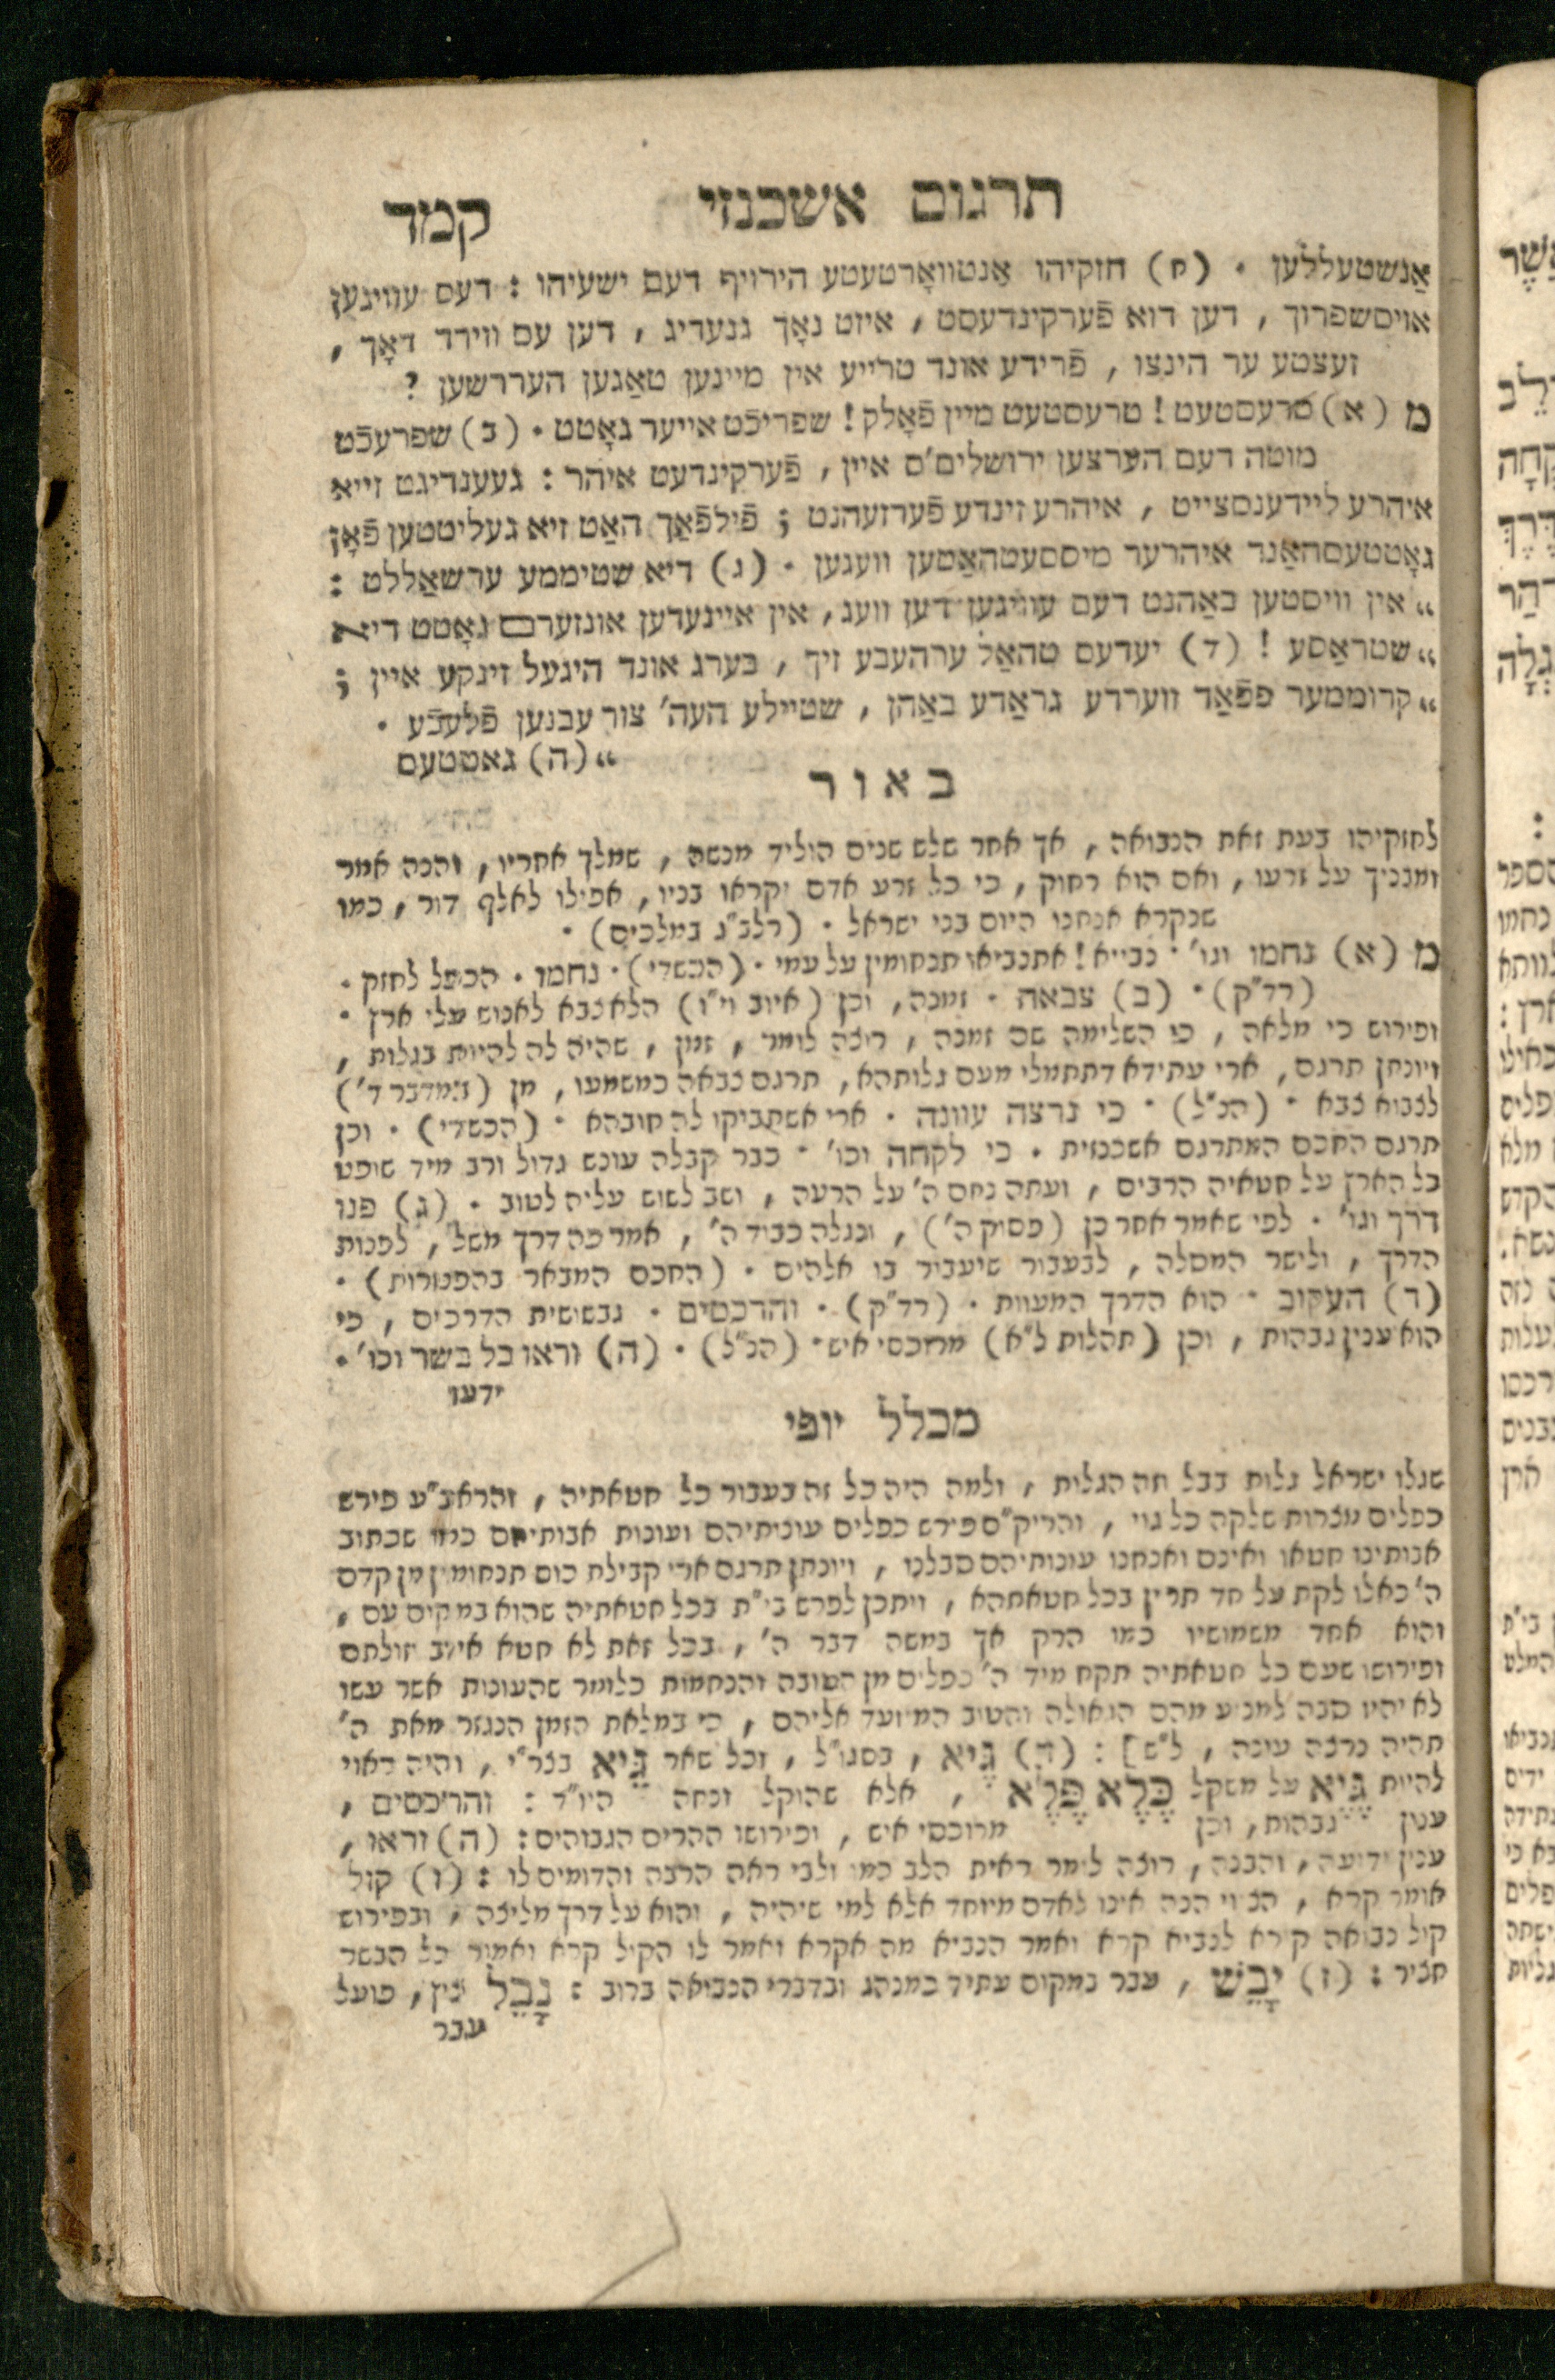 תרגום אשכנזי קמד
אַנשטעללען · (ח) חזקיהו אַנטוואָרטעטע הירויף דעם ישעיהו : דעס עוויגען
אויסשפרוך , דען דוא פֿערקינדעסט , איזט נאָך גנעדיג , דען עס ווירד דאָך ,
זעצטע ער הינצו , פֿרידע אונד טרייע אין מיינען טאַגען העררשען ?
מ (א) טרעסטעט ! טרעסטעט מיין פֿאָלק ! שפריכֿט אייער גאָטט · (ב) שפרעכֿט
מוטה דעם הערצען ירושלים'ס איין , פֿערקינדעט איהר : געענדיגט זייא
איהרע ליידענסצייט , איהרע זינדע פֿערזעהנט ; פֿילפֿאַך האַט זיא געליטטען פֿאָן
גאָטטעסהאַנד איהרער מיססעטהאַטען וועגען · (ג) דיא שטיממע ערשאַללט :
„ אין וויסטען באַהנט דעם עוויגען דען וועג , אין איינעדען אונזערם גאָטט דיא
„ שטראַסע ! (ד) יעדעס טהאַל ערהעבע זיך , בערג אונד היגעל זינקע איין ;
„ קרוממער פפֿאַד ווערדע גראַדע באַהן , שטיילע העה' צור עבנען פֿלעכֿע ·
„ (ה) גאטטעס
באור
לחזקיהו בעת זאת הנבואה , אך אחר שלש שנים הוליד מנשה , שמלך אחריו , והנה אמר
ומבניך על זרעו , ואם הוא רחוק , כי כל זרע אדם יקראו בניו , אפילו לאלף דור , כמו
שנקרא אנחנו היום בני ישראל · (רלב"ג במלכים) ·
מ (א) נחמו וגו' · נבייא ! אתנביאו תנחומין על עמי · (הכשדי) · נחמו · הכפל לחזק ·
(רד"ק) · (ב) צבאה · זמנה , וכן (איוב וי"ו) הלא צבא לאנוש עלי ארץ ·
ופירוש כי מלאה , כי השלימה שם זמנה , רוצה לומר , זמן , שהיה לה להיות בגלות ,
ויונתן תרגם , ארי עתידא דתתמלי מעם גלותהא , תרגם צבאה כמשמעו , מן (במדבר ד')
לצבוא צבא · (הנ"ל) · כי נרצה עוונה · ארי אשתביקו לה חובהא · (הכשדי) · וכן
תרגם החכם המתרגם אשכנזית · כי לקחה וכו' · כבר קבלה עונש גדול ורב מיד שופט
כל הארץ על חטאיה הרבים , ועתה נחם ה' על הרעה , ושב לשוש עליה לטוב · (ג) פנו
דרך וגו' · לפי שאמר אחר כן (פסוק ה') , ונגלה כבוד ה' , אמר פה דרך משל , לפנות
הדרך , ולישר המסלה , לבעבור שיעביר בו אלהים · (החכם המבאר בהפטורות) ·
(ד) העקוב · הוא הדרך המעוות · (רד"ק) · והרכסים · גבשושית הדרכים , כי
הוא ענין גבהות , וכן (תהלות ל"א) מרוכסי איש · (הנ"ל) · (ה) וראו כל בשר וכו' ·
ידעו
מכלל יופי
שגלו ישראל גלות בבל וזה הגלות , ולמה היה כל זה בעבור כל חטאתיה , והראב"ע פירש
כפלים מצרות שלקה כל גוי , והריק"ם פירש כפלים עונותיהם ועונות אבותיהם כמו שכתוב
אבותינו חטאו ואינם ואנחנו עונותיהם סבלנו , ויונתן תרגם ארי קבילת כוס תנחומין מן קדם
ה' כאלו לקת על חד תרין בכל חטאתהא , ויתכן לפרש בי"ת בכל חטאתיה שהוא במקום עם ,
והוא אחד משמושיו כמו הרק אך במשה דבר ה' , בכל זאת לא חטא איוב זולתם
ופירושו שעם כל חטאתיה תקח מיד ה' כפלים מן הטובה והנחמות כלומר שהעונות אשר עשו
לא יהיו סבה למנוע מהם הגאולה והטוב המיועד אליהם , כי במלאת הזמן הנגזר מאת ה'
תהיה נרצה עונה , ל"ש] : (ד) גֶּיא , בסגו"ל , וכל שאר גֵּיא בצר"י , והיה ראוי
להיות גֶּיֶא על משקל כֶּלֶא פֶּלֶא , אלא שהוקל ונחה היו"ד : והרכסים ,
ענין גבהות , וכן מרוכסי איש , ופירושו ההרים הגבוהים : (ה) וראו ,
ענין ידיעה , והבנה , רוצה לומר ראית הלב כמו ולבי ראה הרבה והדומים לו : (ו) קול
אומר קרא , הצווי הנה אינו לאדם מיוחד אלא למי שיהיה , והוא על דרך מליצה , ובפירוש
קול נבואה קורא לנביא קרא ואמר הנביא מה אקרא ואמר לו הקול קרא ואמור כל הבשר
חציר : (ז) יָבֵשׁ , עבר במקום עתיד כמנהג ובדברי הנבואה ברוב : נָבֵל צִיץ , פועל
עבר